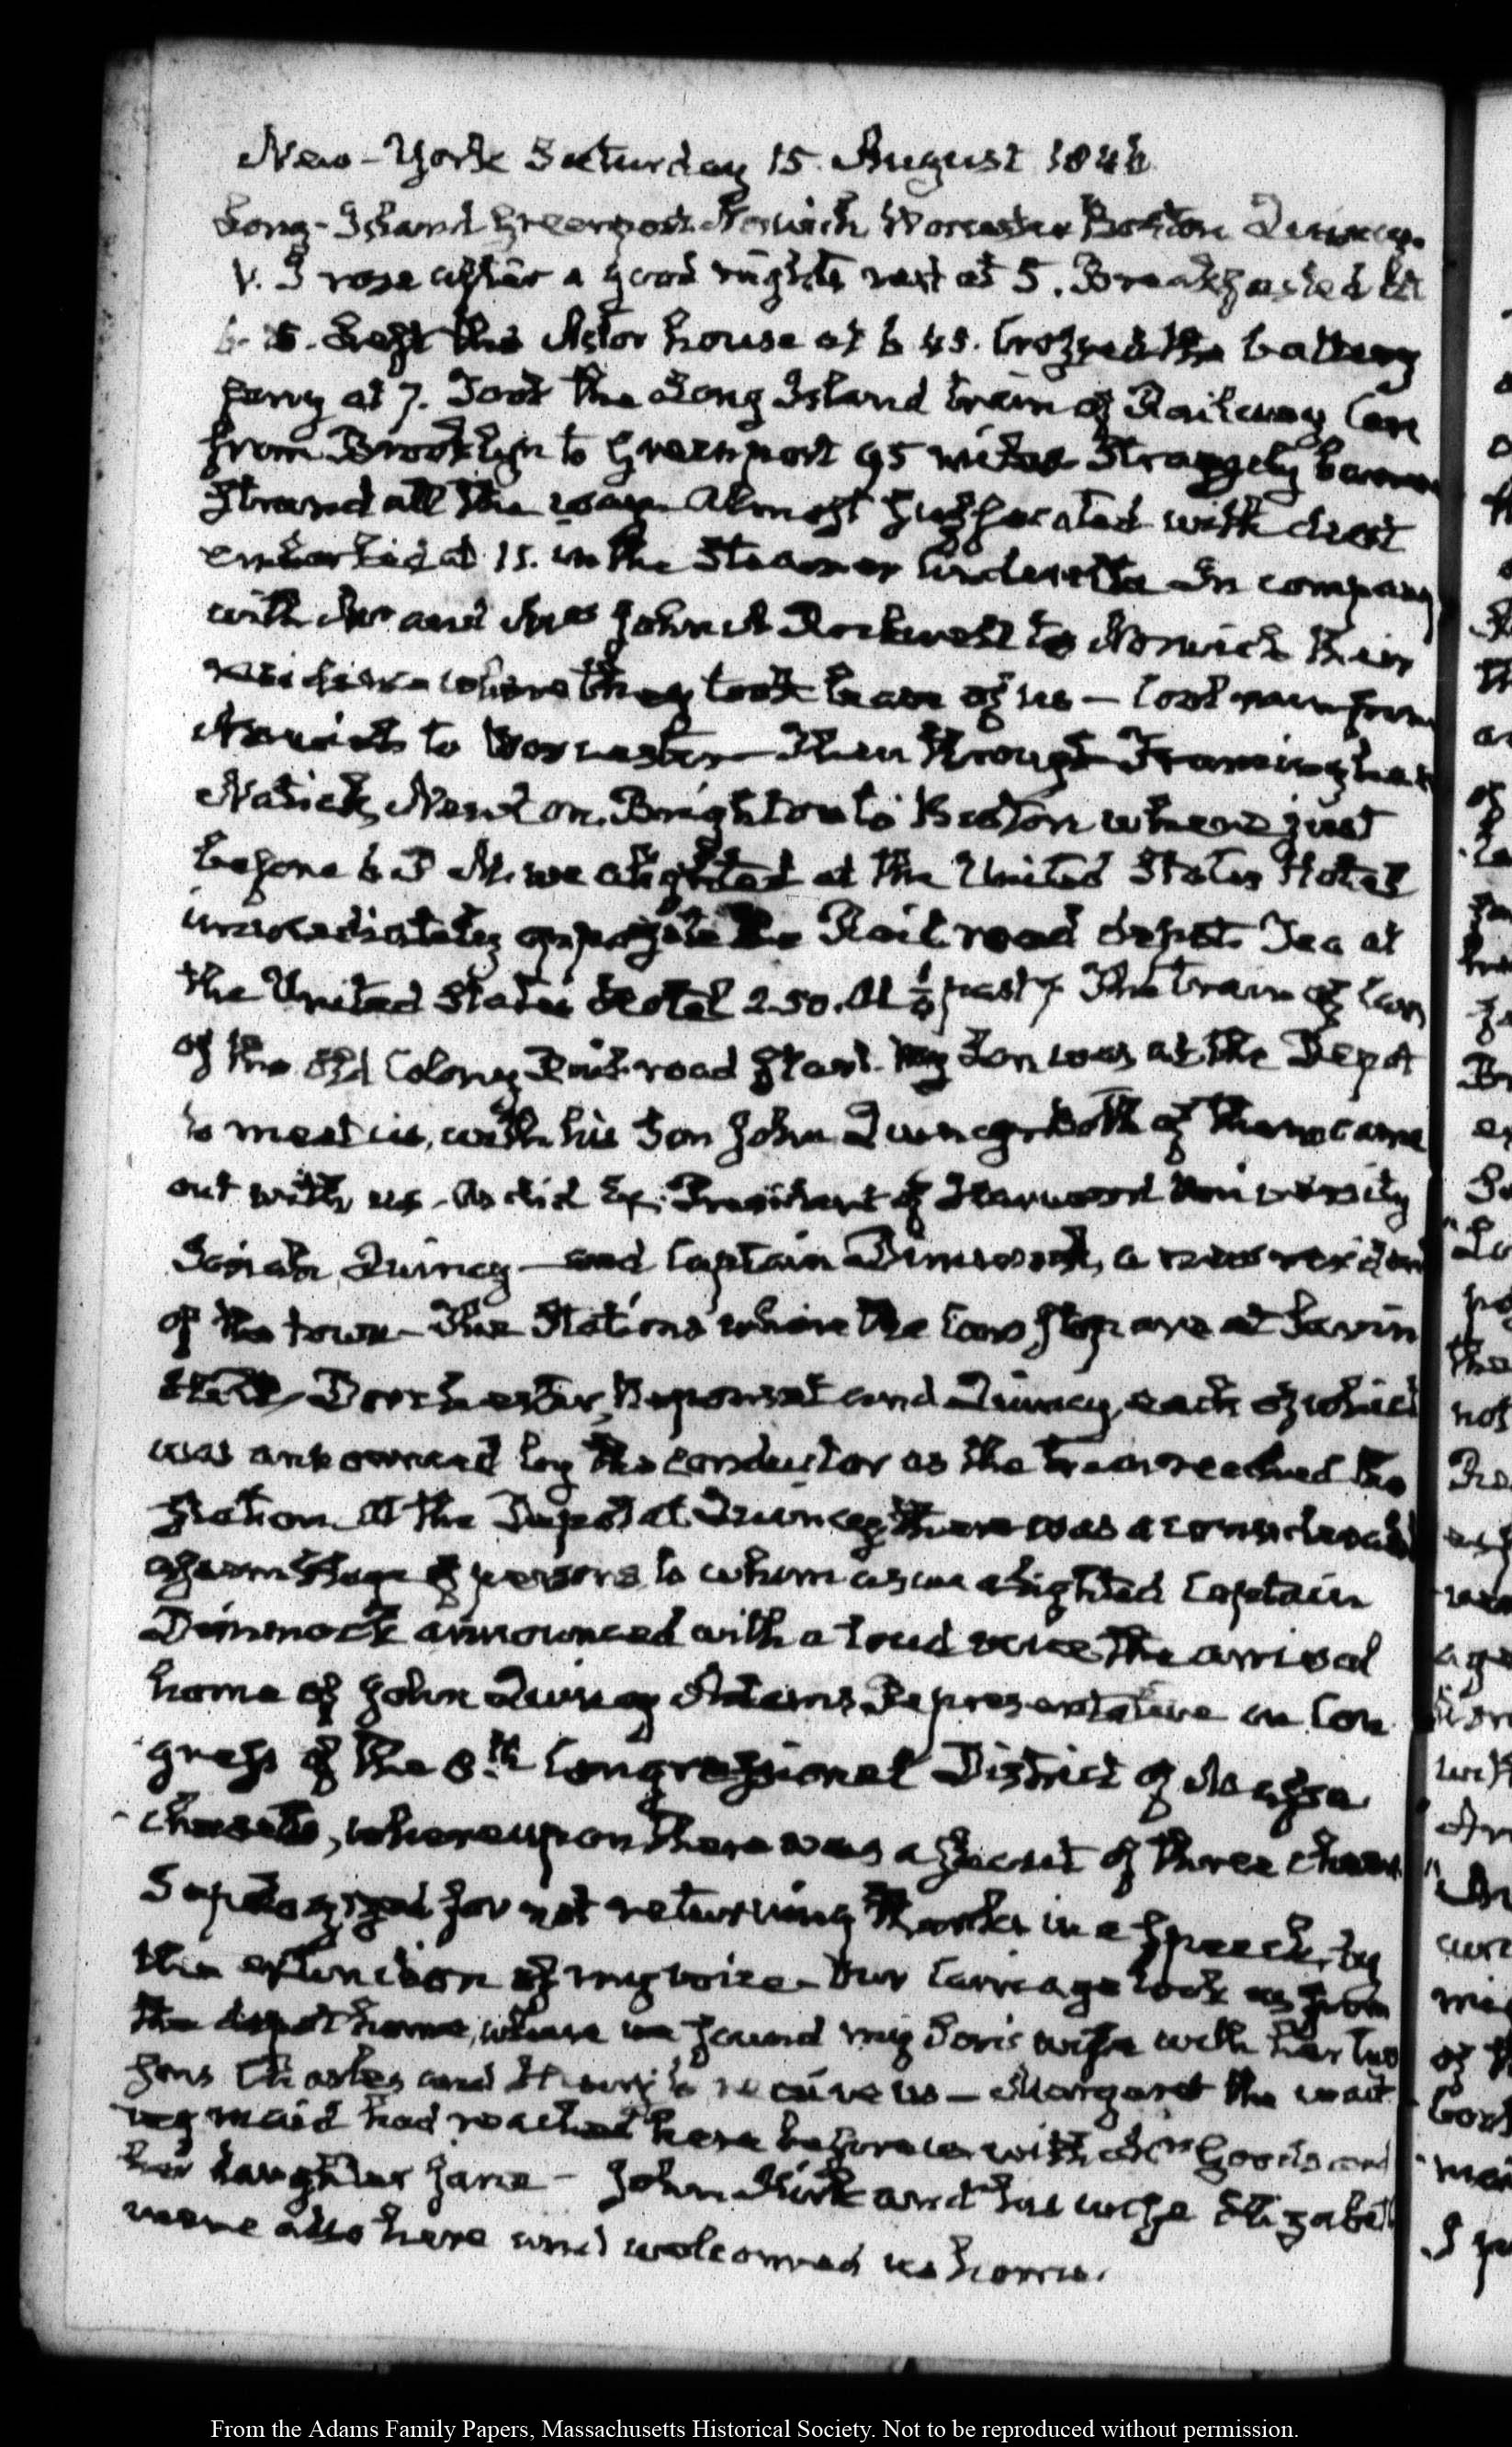 New-York Saturday 15. August 1846
Long-Island Greenport Norwich Worcester Boston Quincy.
V. I rose after a good nights rest at 5. Breakfasted at
6. 15. Left the Astor house at 6 45. Crossed the battery
ferry at 7. Took the Long Island train of Railway Cars
from Brooklyn to Greenport 95 miles Strangely barren
strand all the way. Almost suffocated with dust
embarked at 11. in the Steamer in company
with Mr and Mrs John A Rockwell to Norwich their
residence where they took leave of us — from
Norwich to Worcester — Then through Framingham
Natick, Newton, Brighton to Boston where just
before 6 P. M. we alighted at the United States Hotel
immediately opposite the Rail road depot. Tea at
the United States Hotel 2.50. At ½ past 7 The train of Cars
of the Old Colony Rail-road start. My Son was at the Depot
to meet us, with his Son John Quincy. Both of them came
out with us. As did Ex. President of Harvard University
Josiah Quincy — and Captain Dimmock, a new resident
of the town — The Stations where the Cars stop are at Savin
Hill, Dorchester, Neponset and Quincy, each of which
was announced by the conductor as the train reached the
station. At the Depot at Quincy, there was a considerable
assemblage of persons to whom as we alighted Captain
Dimmock announced with a loud voice the arrival
home of John Quincy Adams Representative in Con
gress of the 8th Congressional District of Massa
chusetts, whereupon there was a shout of three cheers
I apologized for not returning thanks in a speech, by
the extinction of my voice — Our Carriage took us from
the depot home, where we found my Son's wife with her two
sons Charles and Henry to receive us — Margaret the wait
ing maid had reached here before us with Mrs and
her daughter Jane — John Kirk and his wife Elizabeth
were also here and welcomed us home.
From the Adams Family Papers, Massachusetts Historical Society. Not to be reproduced without permission.